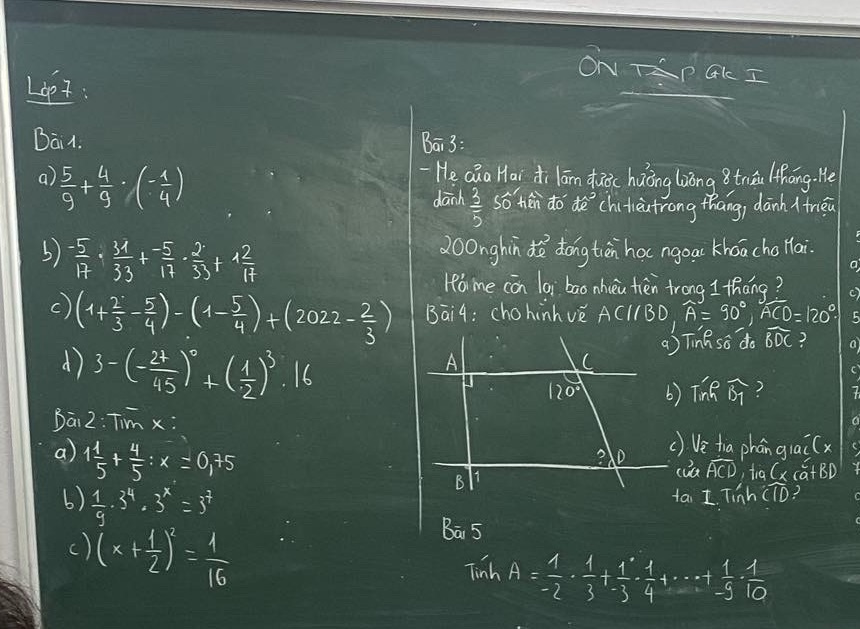 ÔN TẬP GK I
Lớp 7:
Bài 1.
a) 5/9 + 4/9 · (-1/4)
b) -5/17 · 31/33 + -5/17 · 2/33 + 1 2/17
c) (1 + 2/3 - 5/4) - (1 - 5/4) + (2022 - 2/3)
d) 3 - (-27/45)⁰ + (1/2)³ . 16
Bài 2: Tìm x:
a) 1 1/5 + 4/5 : x = 0,75
b) 1/9 . 3⁴ . 3ˣ = 3⁷
c) (x + 1/2)² = 1/16
Bài 3:
- Mẹ của Mai đi làm được hưởng lương 8 triệu /tháng. Mẹ
dành 3/5 số tiền đó để chi tiêu trong tháng, dành 1 triệu
200 nghìn để đóng tiền học ngoại khóa cho Mai.
Hỏi mẹ còn lại bao nhiêu tiền trong 1 tháng?
Bài 4: cho hình vẽ AC // BD, Â = 90°, ACD = 120°.
a) Tính số đo BDC?
A C
120°
b) Tính B1?
c) Vẽ tia phân giác Cx
của ACD, tia Cx cắt BD
tại I. Tính CID?
? D
B 1
Bài 5
Tính A = 1/-2 · 1/3 + 1/-3 · 1/4 + ... + 1/-9 · 1/10